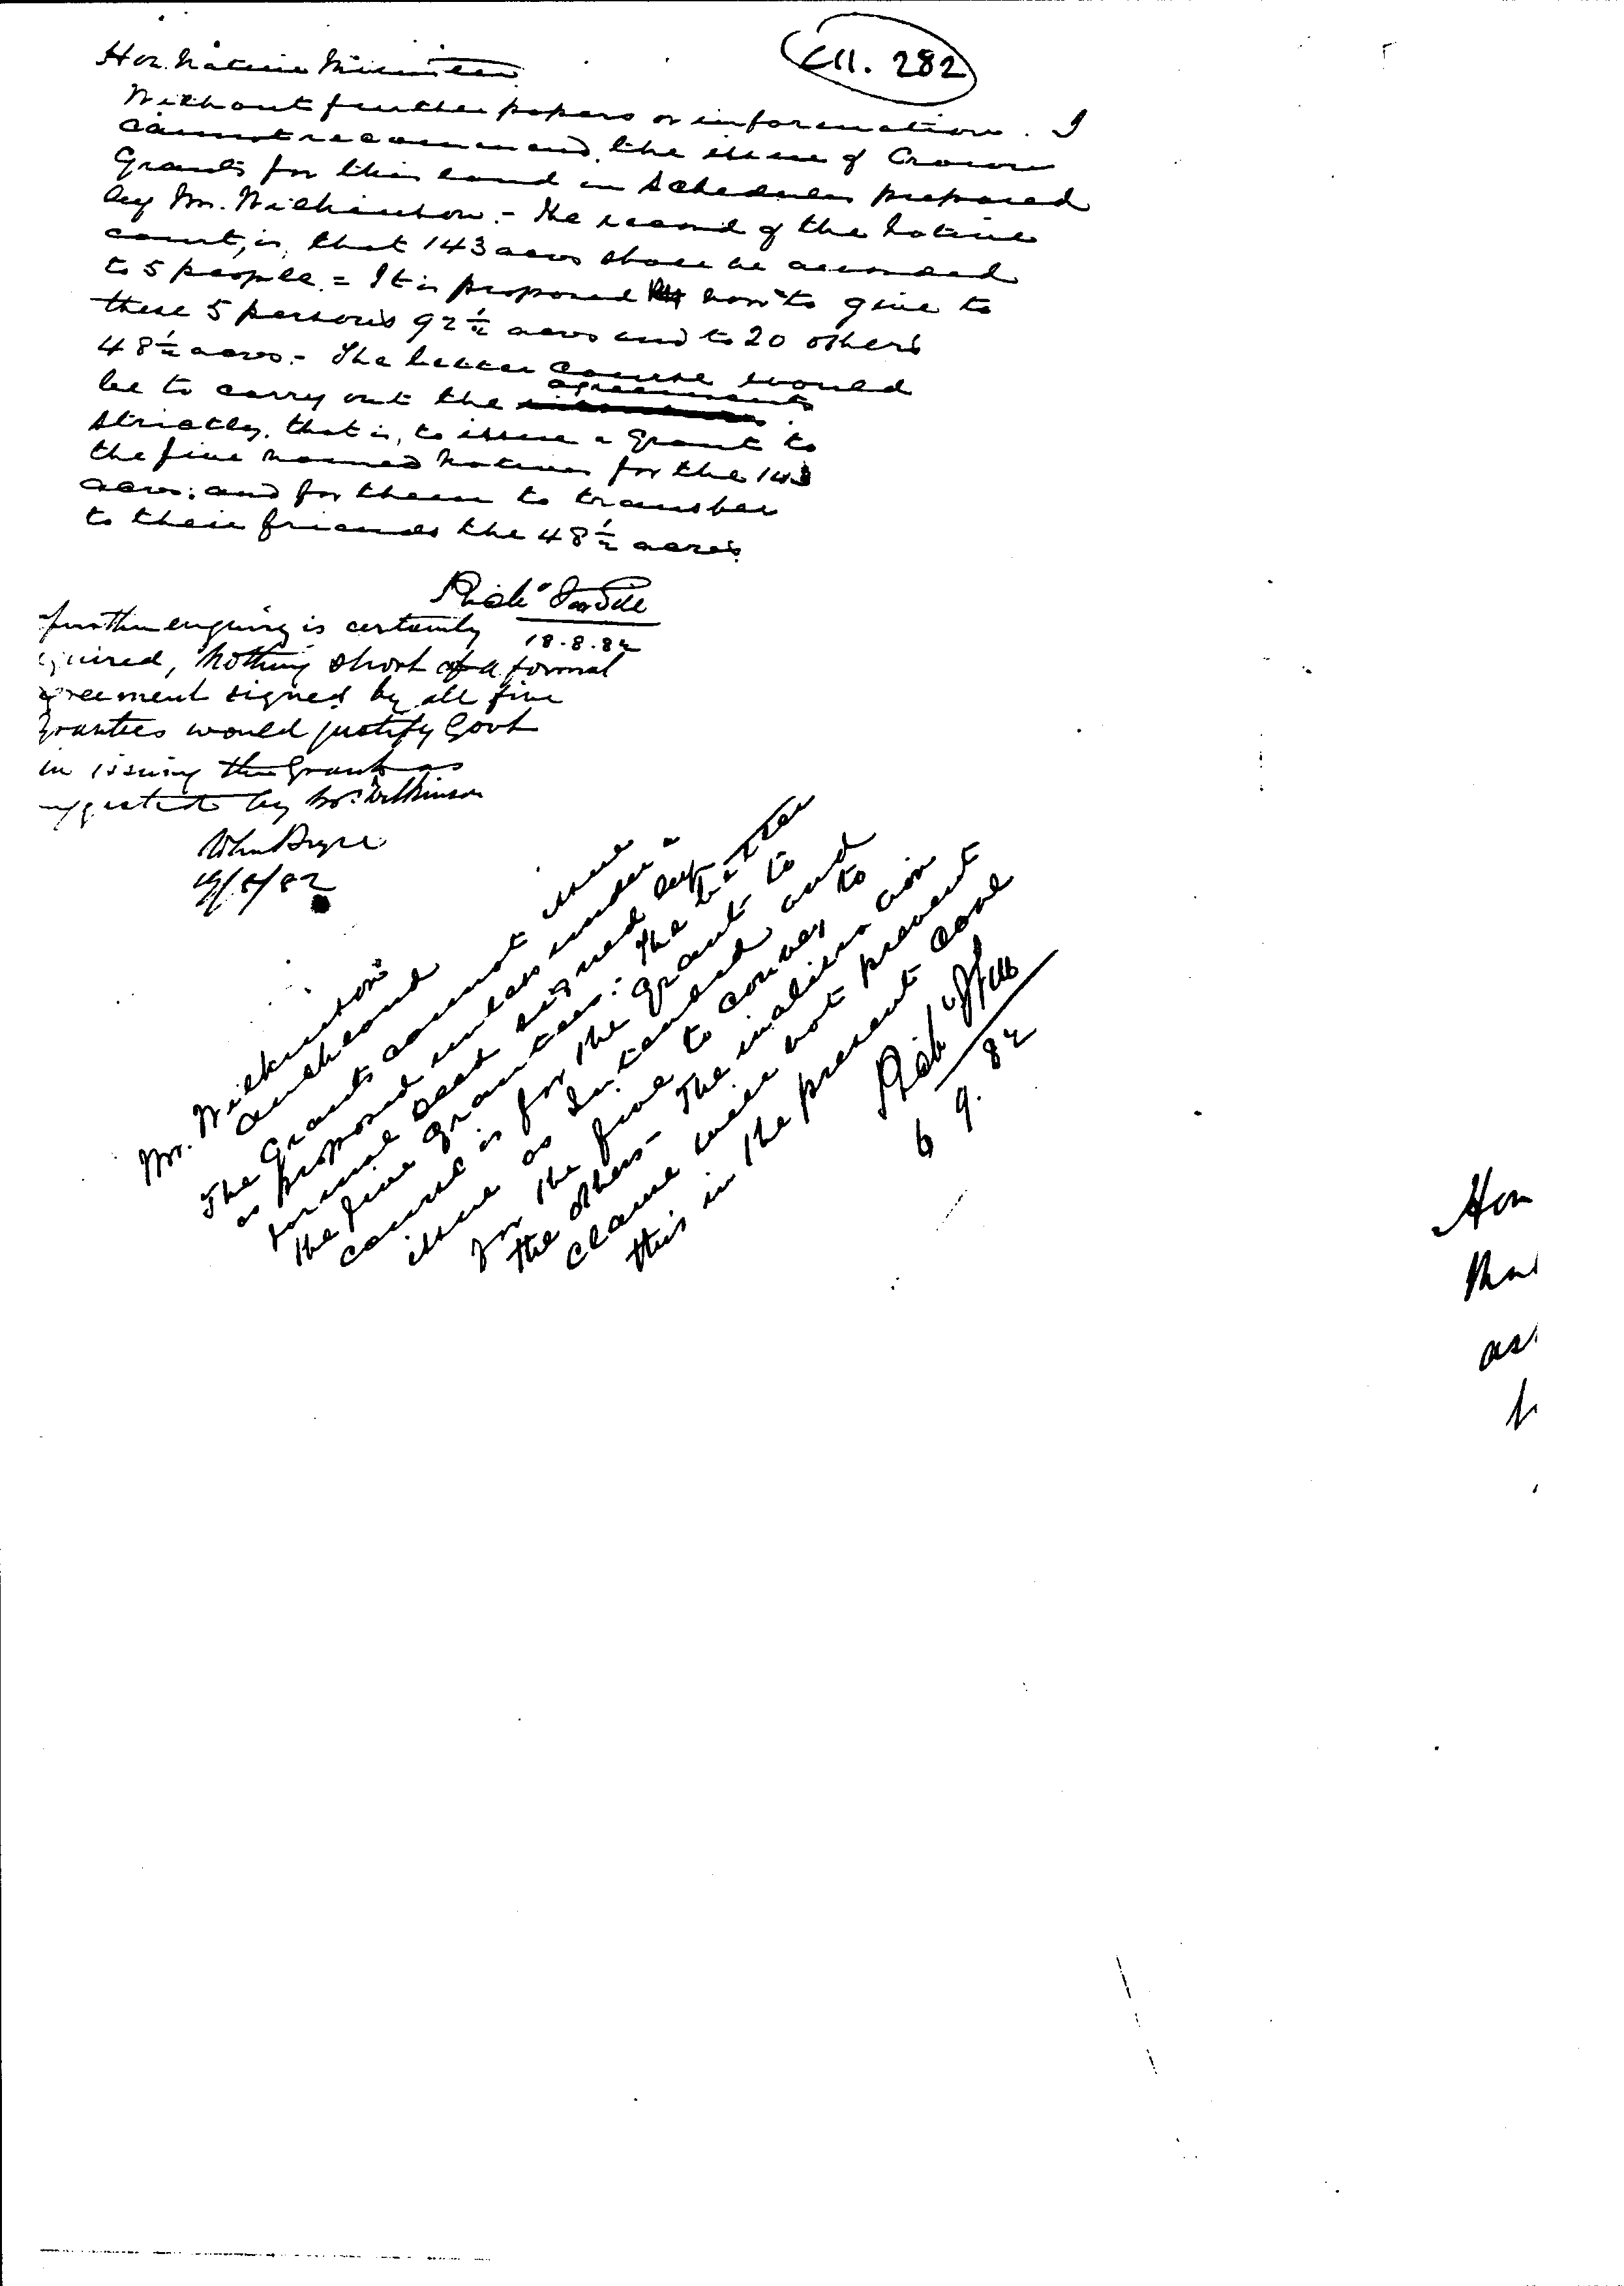 C11. 282
Hon. Native Minister
Without further papers or information. I
cannot recommend the issue of Crown
Grants for this land in Schedules prepared
by Mr. Wilkinson. - The record of the Native
court, is, that 143 acres shall be awarded
to 5 people. = It is proposed now to give to
these 5 persons 92 ½ acres and to 20 others
48 ½ acres. - The better course would
be to carry out the agreements
strictly, that is, to issue a grant to
the five named natives for the 143
acres; and for them to transfer
to their friends the 48 ½ acres.
18.8.82
further enquiry is certainly
quired, nothing short of a formal
greement signed by all five
grantees would justify Govt
in issuing the Grant as
uggested by Mr. Wilkinson
John Bryce
19/8/82
Mr. Wilkinson
Auckland
The Grants cannot issue
as proposed unless under a
formal deed signed by
the five grantees: The better
course is for the grant to
issue as intended and
for the five to convey to
the others - The inalienation
clause will not prevent
this in the present case
6 9. 82
Hon
as